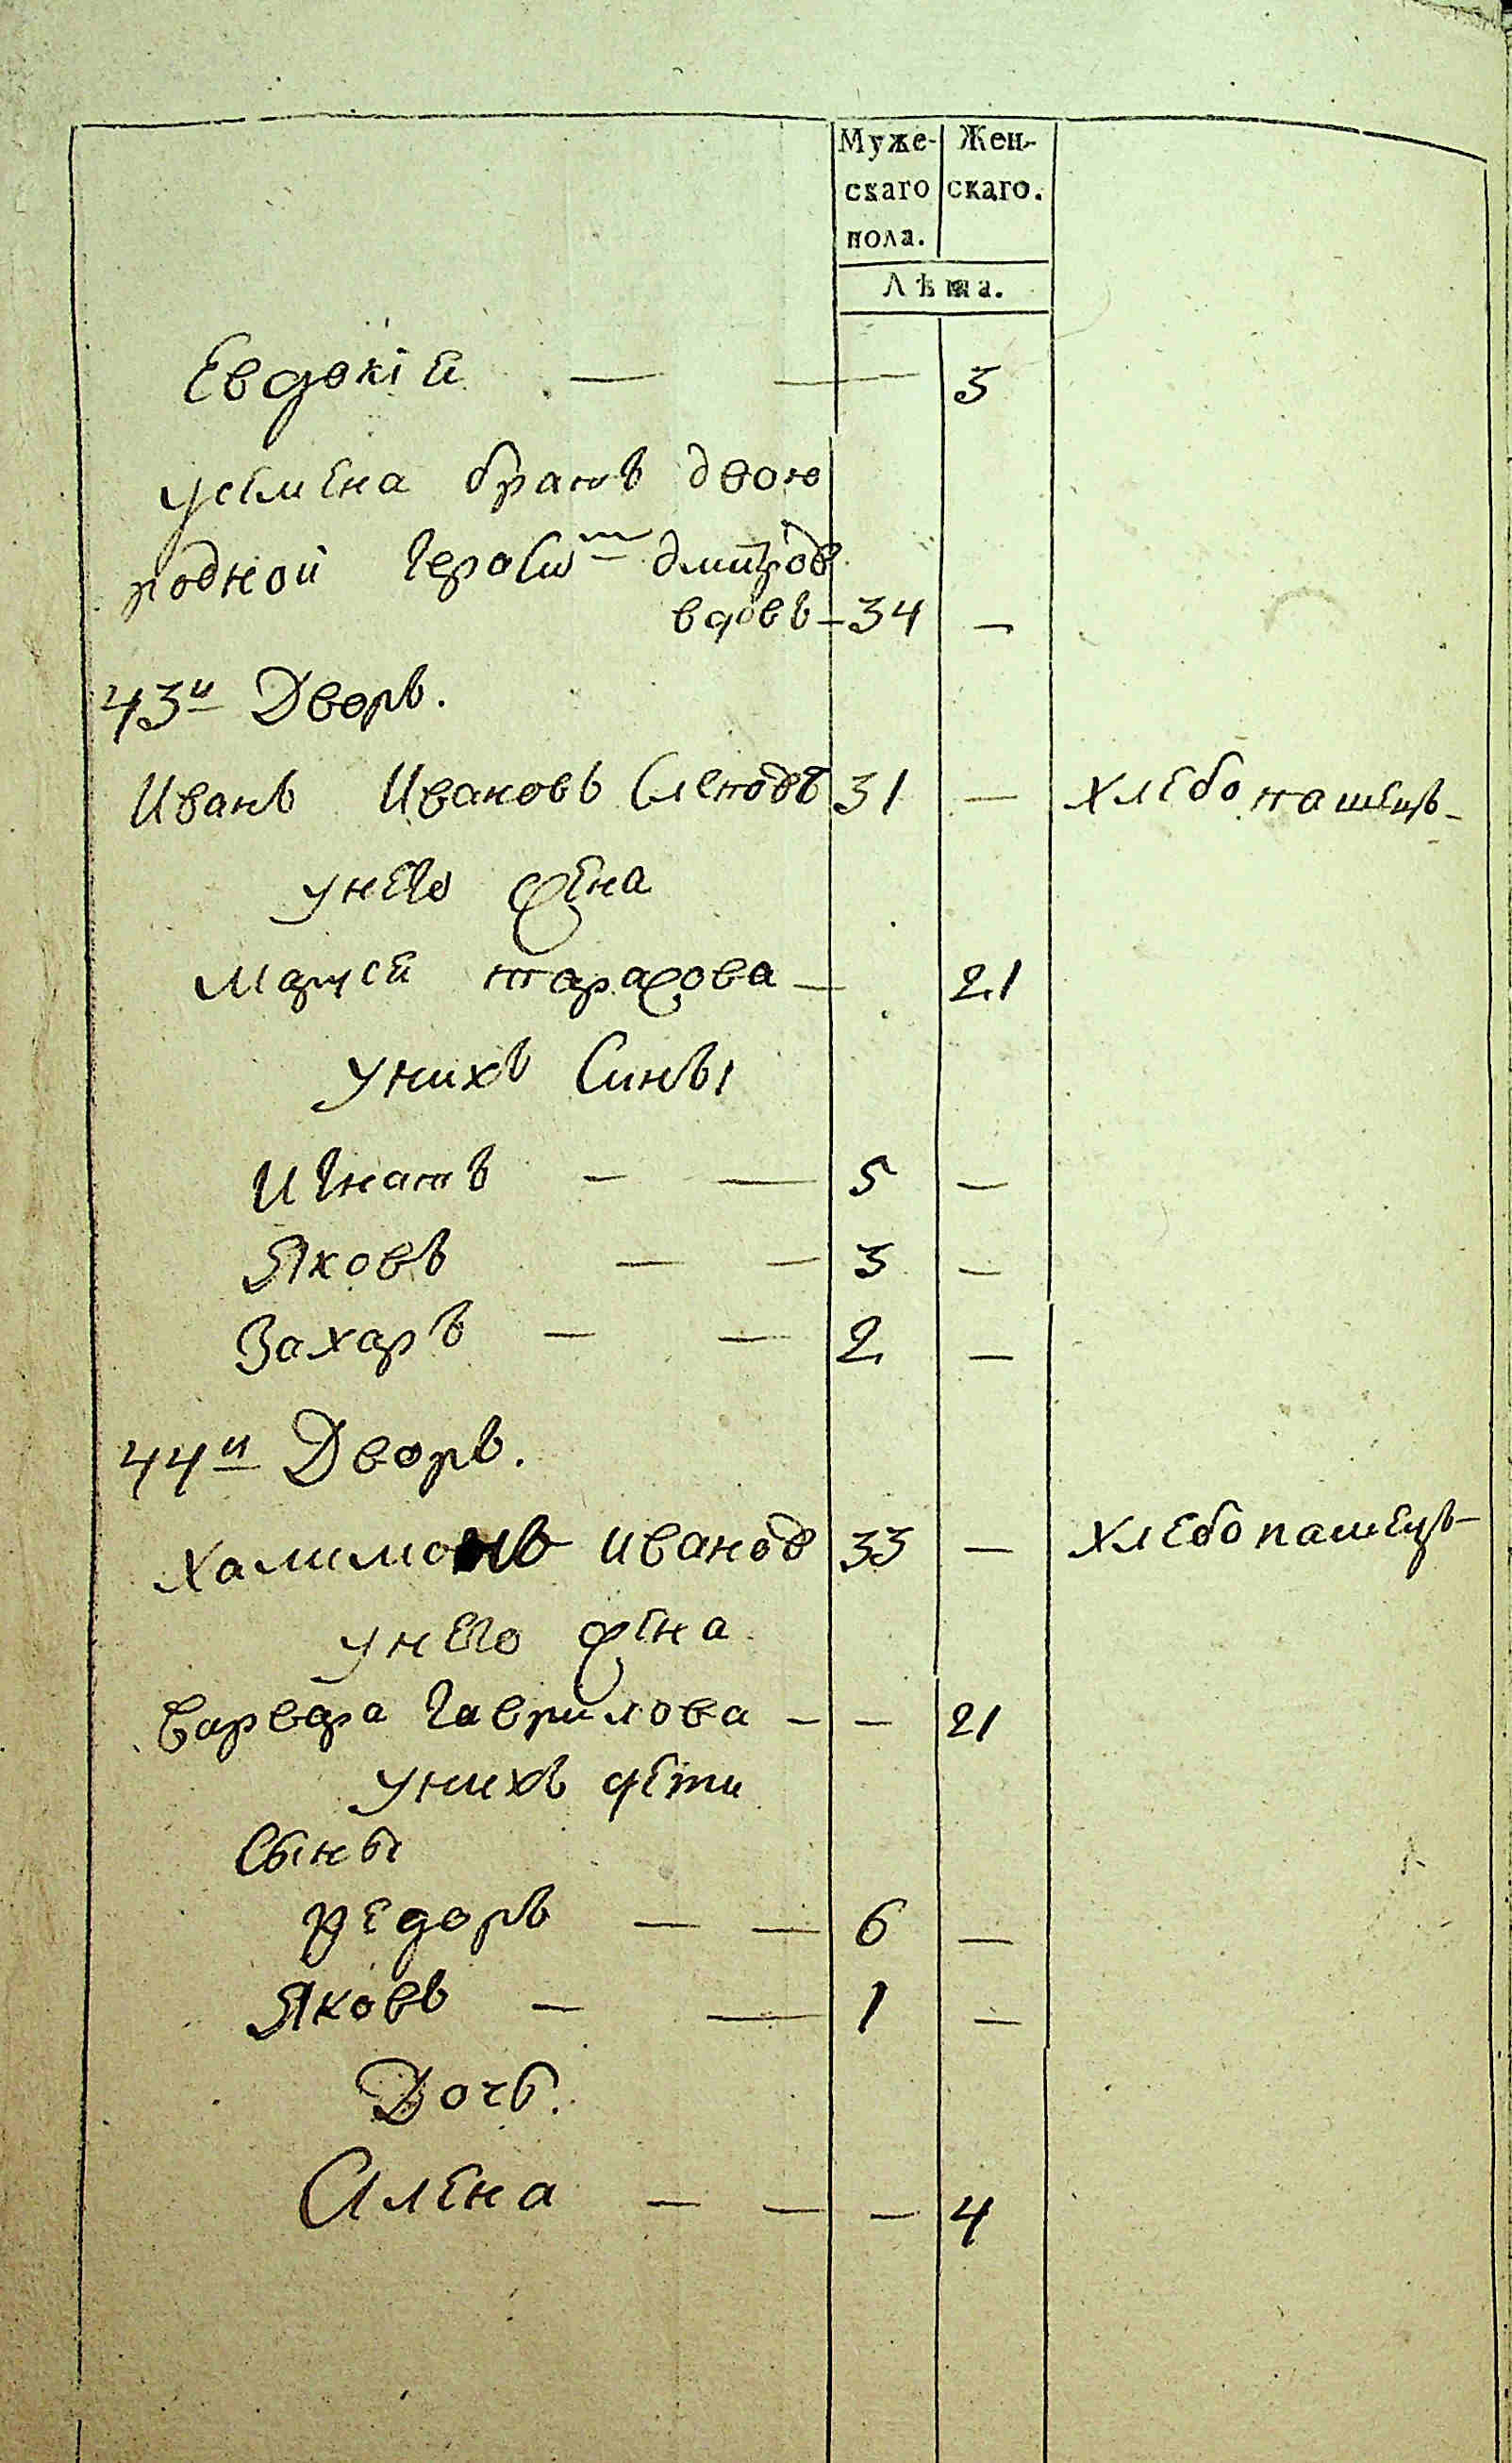 Муже- Жен-
скаго скаго.
пола.
Лѣта.
Евдокіи — — 3
усемена братъ двою
родной Герасим дмитров
вдовъ — 34 —
43й Дворъ.
Иванъ Ивановъ 31 — хлебопашецъ
унего жена
Марѳеи тарасова — 21
унихъ Синъı
Игнатъ — — 5 —
Яковъ — — 3 —
Захаръ — — 2 —
44й Дворъ.
Халимонъ иванов 33 — хлебопашецъ
унего жена
варвара Гаврилова — — 21
унихъ дети
Сыны
Ѳедоръ — — 6 —
Яковъ — — 1 —
Дочь.
Алена — — — 4